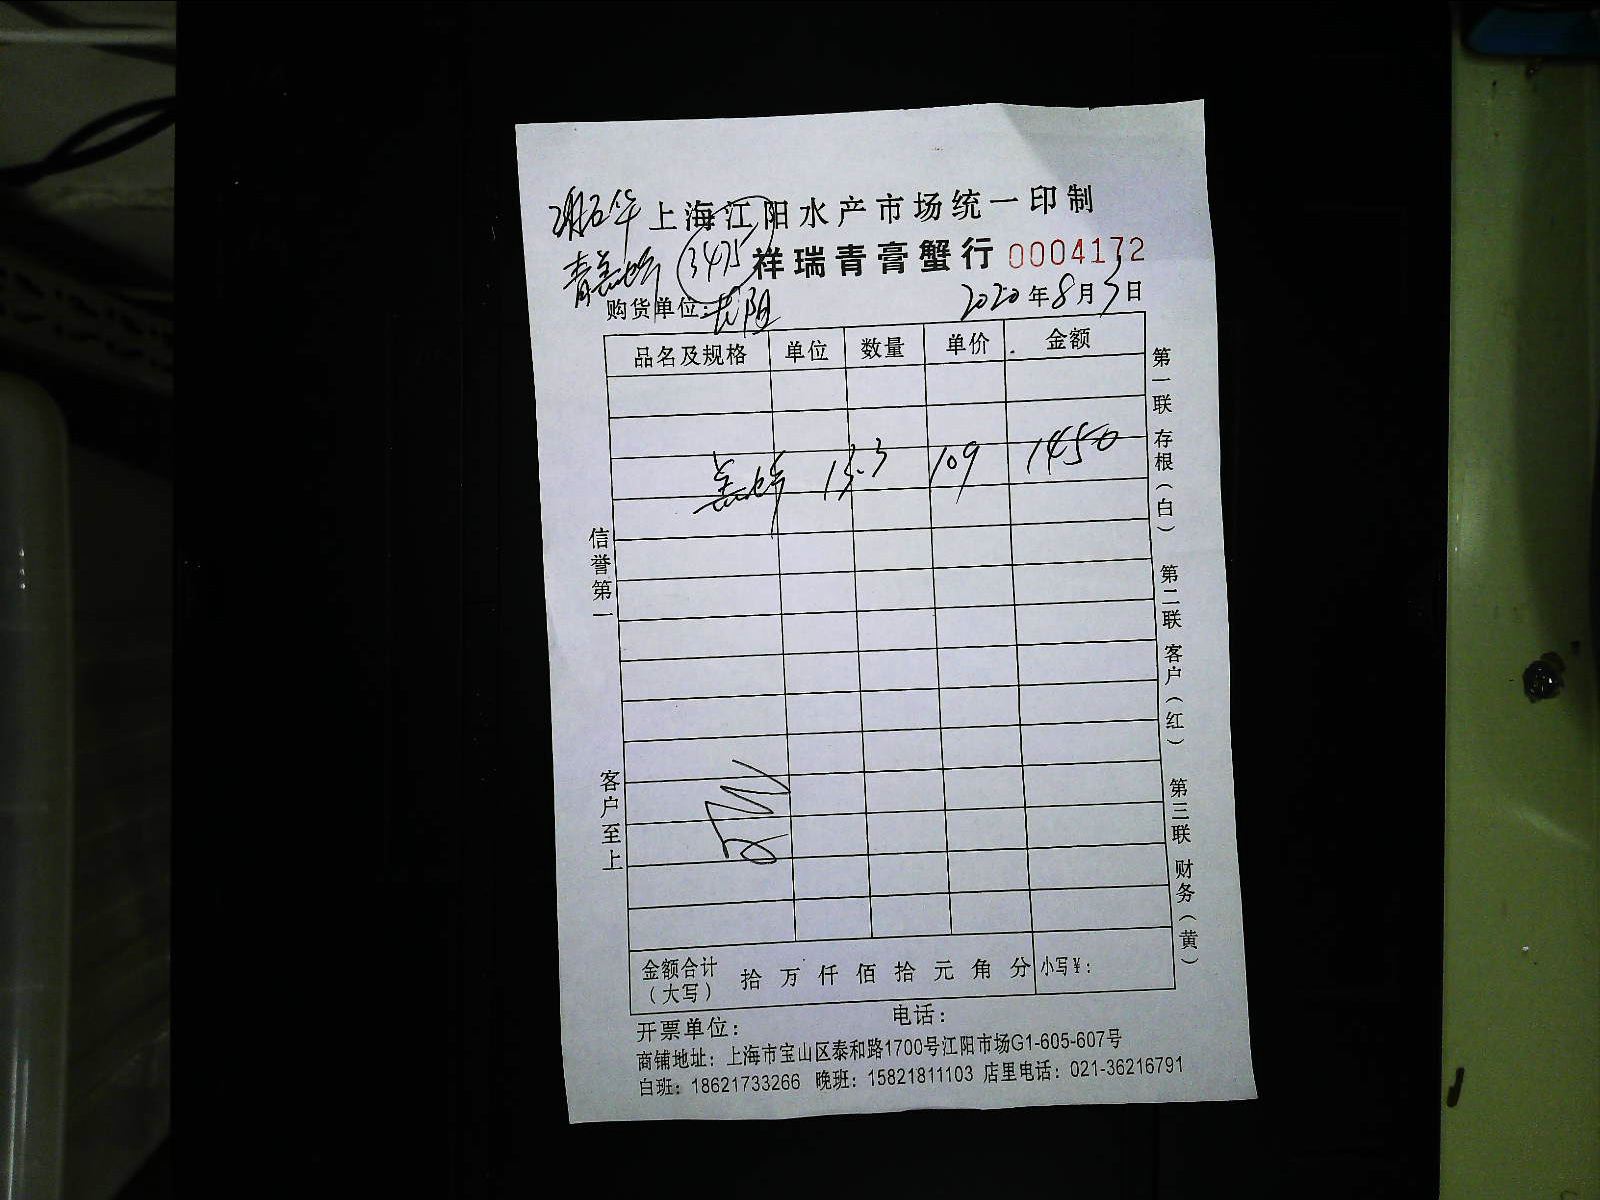 上海江阳水产市场统一印制
3475 祥瑞青膏蟹行 0004172
购货单位: 2020年8月3日
品名及规格 单位 数量 单价 金额
13.3 109 1450
信誉第一
客户至上
第一联 存根(白)
第二联 客户(红)
第三联 财务(黄)
金额合计(大写) 拾 万 仟 佰 拾 元 角 分 小写¥:
开票单位: 电话:
商铺地址: 上海市宝山区泰和路1700号江阳市场G1-605-607号
白班: 18621733266 晚班: 15821811103 店里电话: 021-36216791